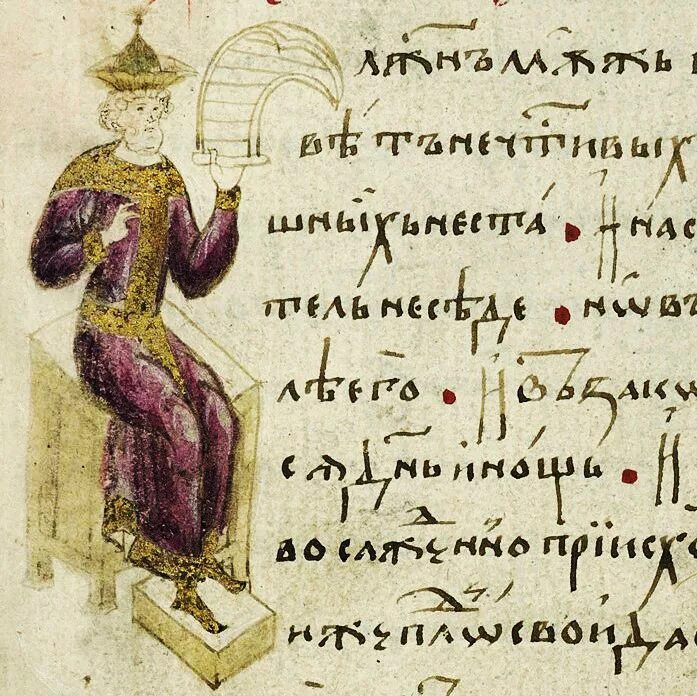 лжнъ мѫжь
вѣтъ нечⷭ҇тивых
шныхъ не ста • И нас
тель не сѣде • нѡ въ
лѣ его • И въ закѡ
сѧ дн҃ь и нощь • И
во сажⷣенно при исх
иже плѡⷣ свои да